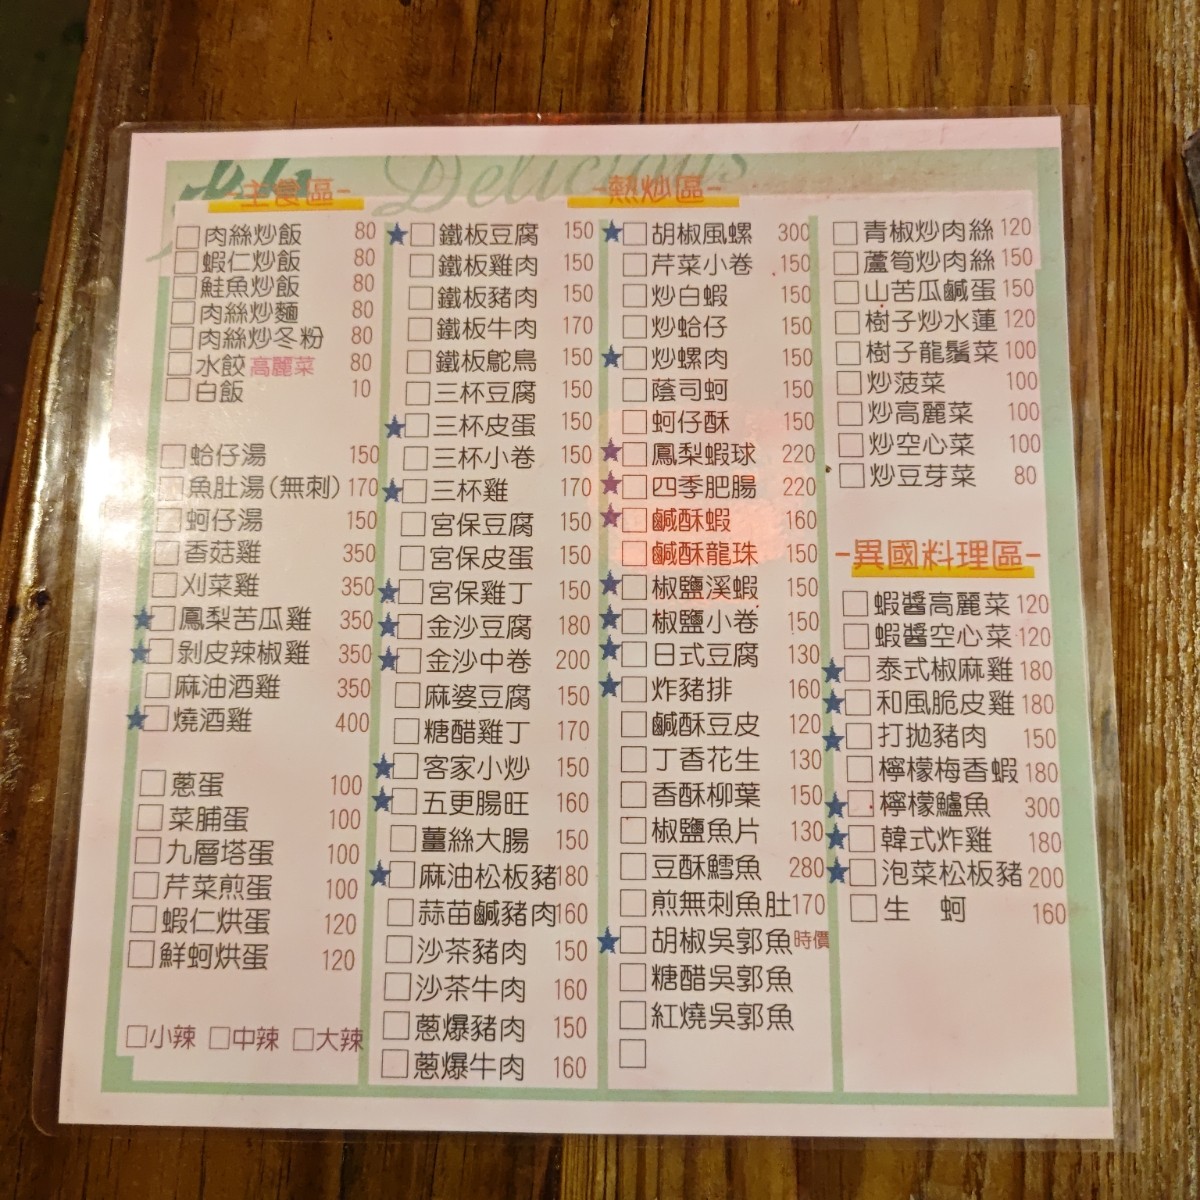 Delicious
-主食區-
□肉絲炒飯 80
□蝦仁炒飯 80
□鮭魚炒飯 80
□肉絲炒麵 80
□肉絲炒冬粉 80
□水餃高麗菜 80
□白飯 10
□蛤仔湯 150
□魚肚湯(無刺) 170
□蚵仔湯 150
□香菇雞 350
□刈菜雞 350
★□鳳梨苦瓜雞 350
★□剝皮辣椒雞 350
□麻油酒雞 350
★□燒酒雞 400
□蔥蛋 100
□菜脯蛋 100
□九層塔蛋 100
□芹菜煎蛋 100
□蝦仁烘蛋 120
□鮮蚵烘蛋 120
□小辣 □中辣 □大辣
-熱炒區-
★□鐵板豆腐 150
□鐵板雞肉 150
□鐵板豬肉 150
□鐵板牛肉 170
□鐵板鴕鳥 150
□三杯豆腐 150
★□三杯皮蛋 150
□三杯小卷 150
★□三杯雞 170
□宮保豆腐 150
□宮保皮蛋 150
★□宮保雞丁 150
★□金沙豆腐 180
★□金沙中卷 200
□麻婆豆腐 150
□糖醋雞丁 170
★□客家小炒 150
★□五更腸旺 160
□薑絲大腸 150
★□麻油松板豬 180
□蒜苗鹹豬肉 160
□沙茶豬肉 150
□沙茶牛肉 160
□蔥爆豬肉 150
□蔥爆牛肉 160
★□胡椒風螺 300
□芹菜小卷 150
□炒白蝦 150
□炒蛤仔 150
★□炒螺肉 150
□蔭司蚵 150
□蚵仔酥 150
★□鳳梨蝦球 220
★□四季肥腸 220
★□鹹酥蝦 160
□鹹酥龍珠 150
★□椒鹽溪蝦 150
★□椒鹽小卷 150
★□日式豆腐 130
★□炸豬排 160
□鹹酥豆皮 120
□丁香花生 130
□香酥柳葉 150
□椒鹽魚片 130
□豆酥鱈魚 280
□煎無刺魚肚 170
★□胡椒吳郭魚 時價
□糖醋吳郭魚
□紅燒吳郭魚
□
□青椒炒肉絲 120
□蘆筍炒肉絲 150
□山苦瓜鹹蛋 150
□樹子炒水蓮 120
□樹子龍鬚菜 100
□炒菠菜 100
□炒高麗菜 100
□炒空心菜 100
□炒豆芽菜 80
-異國料理區-
□蝦醬高麗菜 120
□蝦醬空心菜 120
★□泰式椒麻雞 180
★□和風脆皮雞 180
★□打拋豬肉 150
□檸檬梅香蝦 180
★□檸檬鱸魚 300
★□韓式炸雞 180
★□泡菜松板豬 200
□生 蚵 160